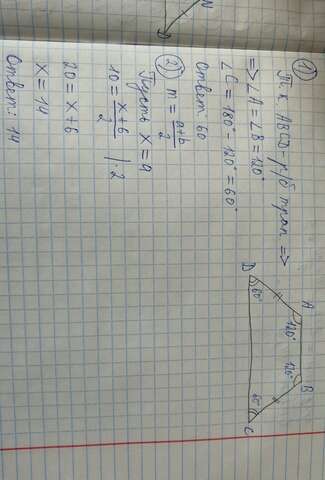 N
D
1) Т.к. ABCD - р/б трап =>
=> ∠A = ∠B = 120°
∠C = 180° - 120° = 60°
Ответ: 60
A
B
120°
120°
D
60°
60°
C
2) m = a+b/2
Пусть x = a
10 = x+6/2 | · 2
20 = x + 6
x = 14
Ответ: 14